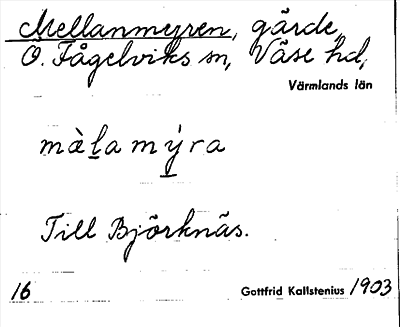 Mellanmyren, gärde,
Ö. Fågelviks sn, Väse hd,
Värmlands län
màl̲a mý̲ra
Till Björknäs.
16 Gottfrid Kallstenius 1903